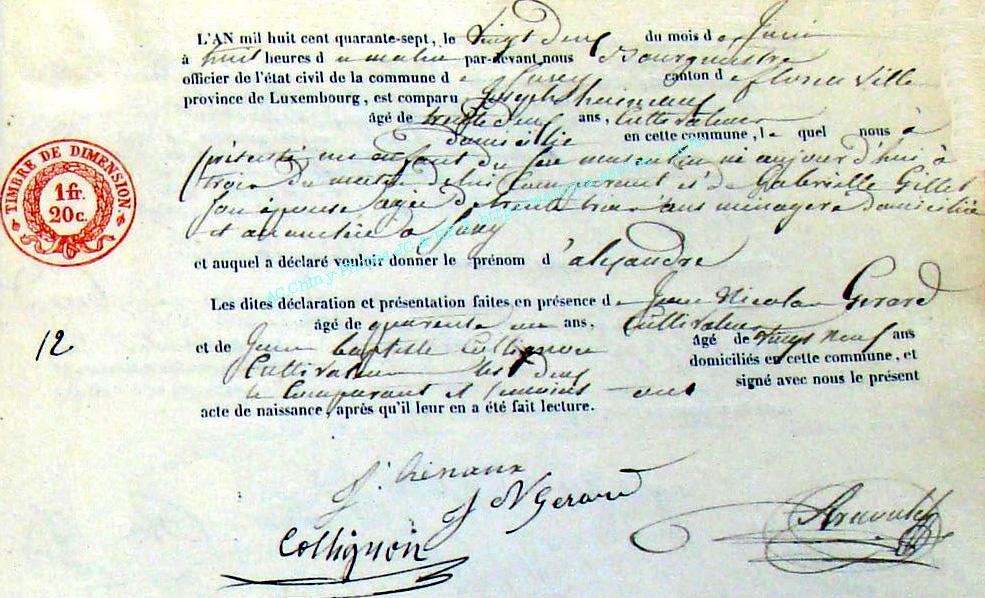 L'AN mil huit cent quarante-sept, le vingt deux du mois d e Juin
à huit heures d u matin par-devant nous Bourgmestre
officier de l'état civil de la commune d e canton d e florenville
province de Luxembourg, est comparu Joseph
âgé de trente deux ans, Cultivateur
domicilié en cette commune, le quel nous à
présenté un enfant du sexe masculin né aujourd'hui à
trois du matin de lui comparant et de Gabrielle Gillet
son épouse agée de trente trois ans ménagère domiciliée
et à
et auquel a déclaré vouloir donner le prénom d 'alexandre
Les dites déclaration et présentation faites en présence d e Jean Nicolas Gerard
âgé de quarante un ans, Cultivateur
et de Jean baptiste Collignon âgé de vingt neuf ans
Cultivateur les deux domiciliés en cette commune, et
le Comparant et témoins ont signé avec nous le présent
acte de naissance, après qu'il leur en a été fait lecture.
TIMBRE DE DIMENSION
1 fr.
20 c.
12
JN Gerard
Collignon